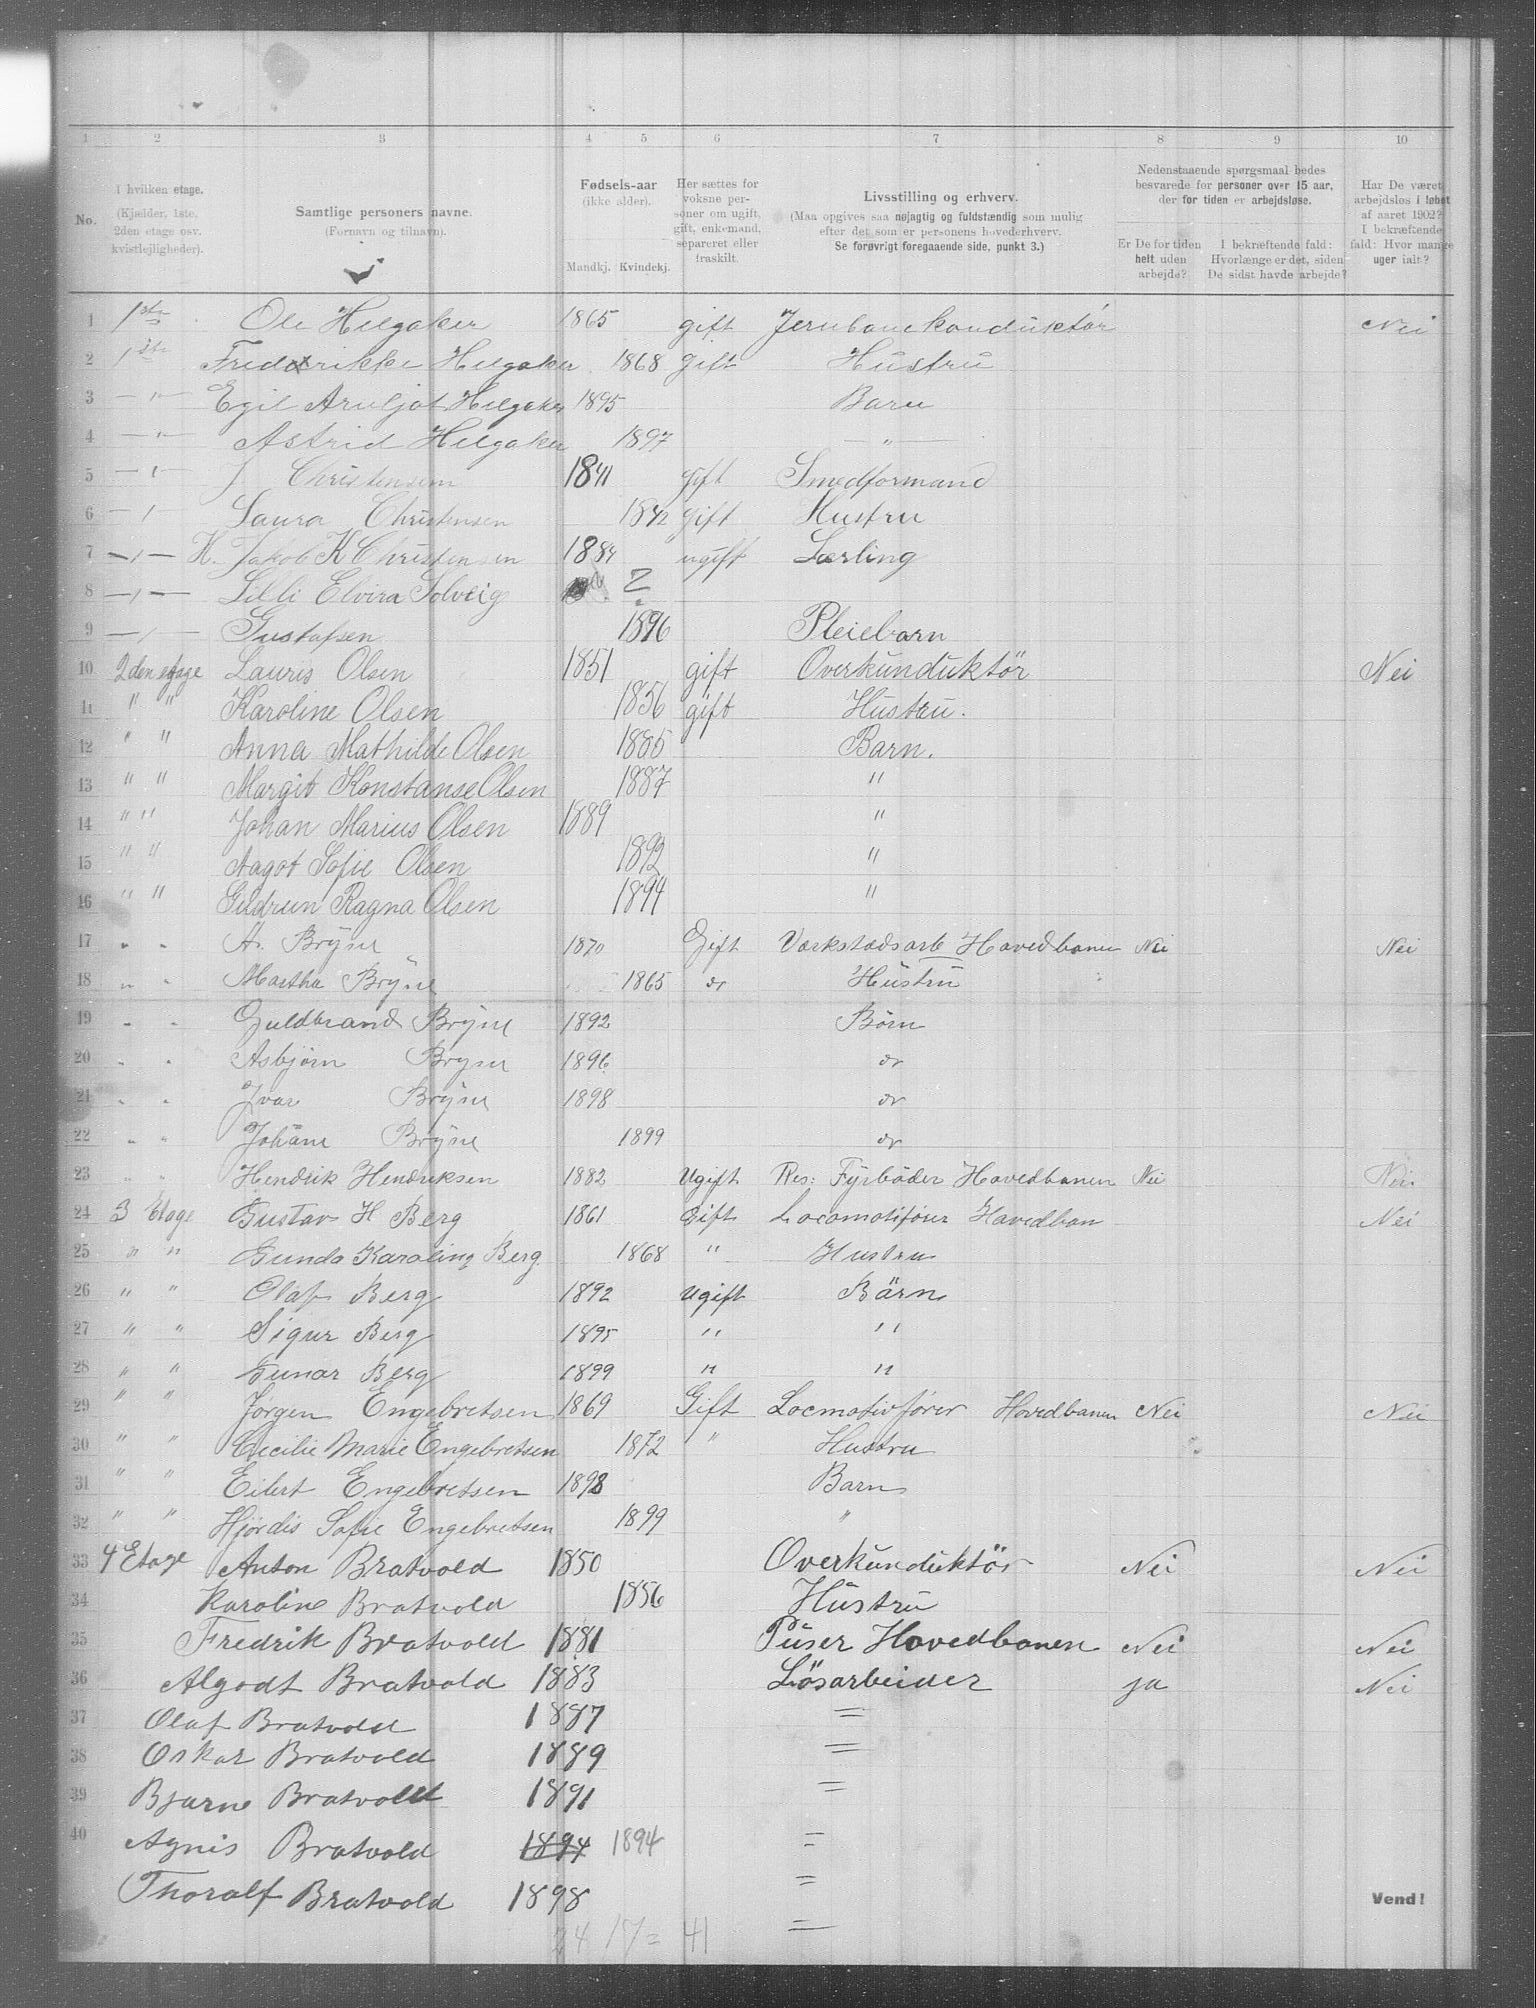 1 2 3 4 5 6 7 8 9 10
No.
I hvilken etage. (Kjælder, 1ste, 2den etage osv. kvistleiligheder).
Samtlige personers navne. (Fornavn og tilnavn).
Fødsels-aar (ikke alder). Mandkj. Kvindekj.
Her sættes for voksne personer om ugift, gift, enkemand, separeret eller fraskilt.
Livsstilling og erhverv. (Maa opgives saa nøjagtig og fuldstændig som mulig efter det som er personens hovederhverv. Se forøvrigt foregaaende side, punkt 3.)
Nedenstaaende spørgsmaal bedes besvarede for personer over 15 aar, der for tiden er arbejdsløse.
Er De for tiden helt uden arbejde?
I bekræftende fald: Hvorlænge er det, siden De sidst havde arbejde?
Har De været arbejdsløs i løbet af aaret 1902? I bekræftende fald: Hvor mange uger ialt?
1 1ste Ole Helgaker 1865 gift Jernbanekonduktør Nei
2 1ste Fredrikke Helgaker 1868 gift Hustru
3 — " — Egil Arnljot Helgaker 1895 Barn
4 — " — Astrid Helgaker 1897 — " —
5 — " — J Christensen 1841 gift Smedformand
6 — " — Laura Christensen 1842 gift Hustru
7 — " — H. Jakob K Christensen 1884 ugift Lærling
8 — " — Lilli Elvira Solveig
9 — " — Gustafsen 1896 Pleiebarn
10 2den etage Lauris Olsen 1851 gift Overkunduktør Nei
11 " " Karoline Olsen 1856 gift Hustru.
12 " " Anna Mathilde Olsen 1885 Barn.
13 " " Margit Konstanse Olsen 1887 "
14 " " Johan Marius Olsen 1889 "
15 " " Aagot Sofie Olsen 1892 "
16 " " Gudrun Ragna Olsen 1894 "
17 " " A. Bryne 1870 Gift Værkstadsarb Hovedbanen Nei Nei
18 " " Martha Bryne 1865 do Hustru
19 " " Guldbrand Bryne 1892 Børn
20 " " Asbjørn Bryne 1896 do
21 " " Ivar Bryne 1898 do
22 " " Johane Bryne 1899 do
23 " " Hendrik Hendriksen 1882 Ugift Res: Fyrbøder Hovedbanen Nei Nei.
24 3 Etage Gustav H Berg 1861 Gift Locomotifører Hovedban Nei
25 " " Gunda Karoline Berg 1868 " Hustru
26 " " Olaf Berg 1892 Ugift Bärn
27 " " Sigur Berg 1895 " "
28 " " Gunar Berg 1899 " "
29 " " Jørgen Engebretsen 1869 Gift Locmotivfører Hovedbanen Nei Nei
30 " " Cecilie Marie Engebretsen 1872 " Hustru
31 " " Eilert Engebretsen 1898 Barn
32 " " Hjørdis Sofie Engebretsen 1899 "
33 4 Etage Anton Bratvold 1850 Overkunduktör Nei Nei
34 Karoline Bratvold 1856 Hüstrü
35 Fredrik Bratvold 1881 Püser Hovedbanen Nei Nei
36 Algodt Bratvold 1883 Lösarbeider ja Nei
37 Olaf Bratvold 1887 =
38 Oskar Bratvold 1889 =
39 Bjarne Bratvold 1891 =
40 Agnis Bratvold 1894 1894 =
Thoralf Bratvold 1898 =
Vend!
24 17 = 41 =